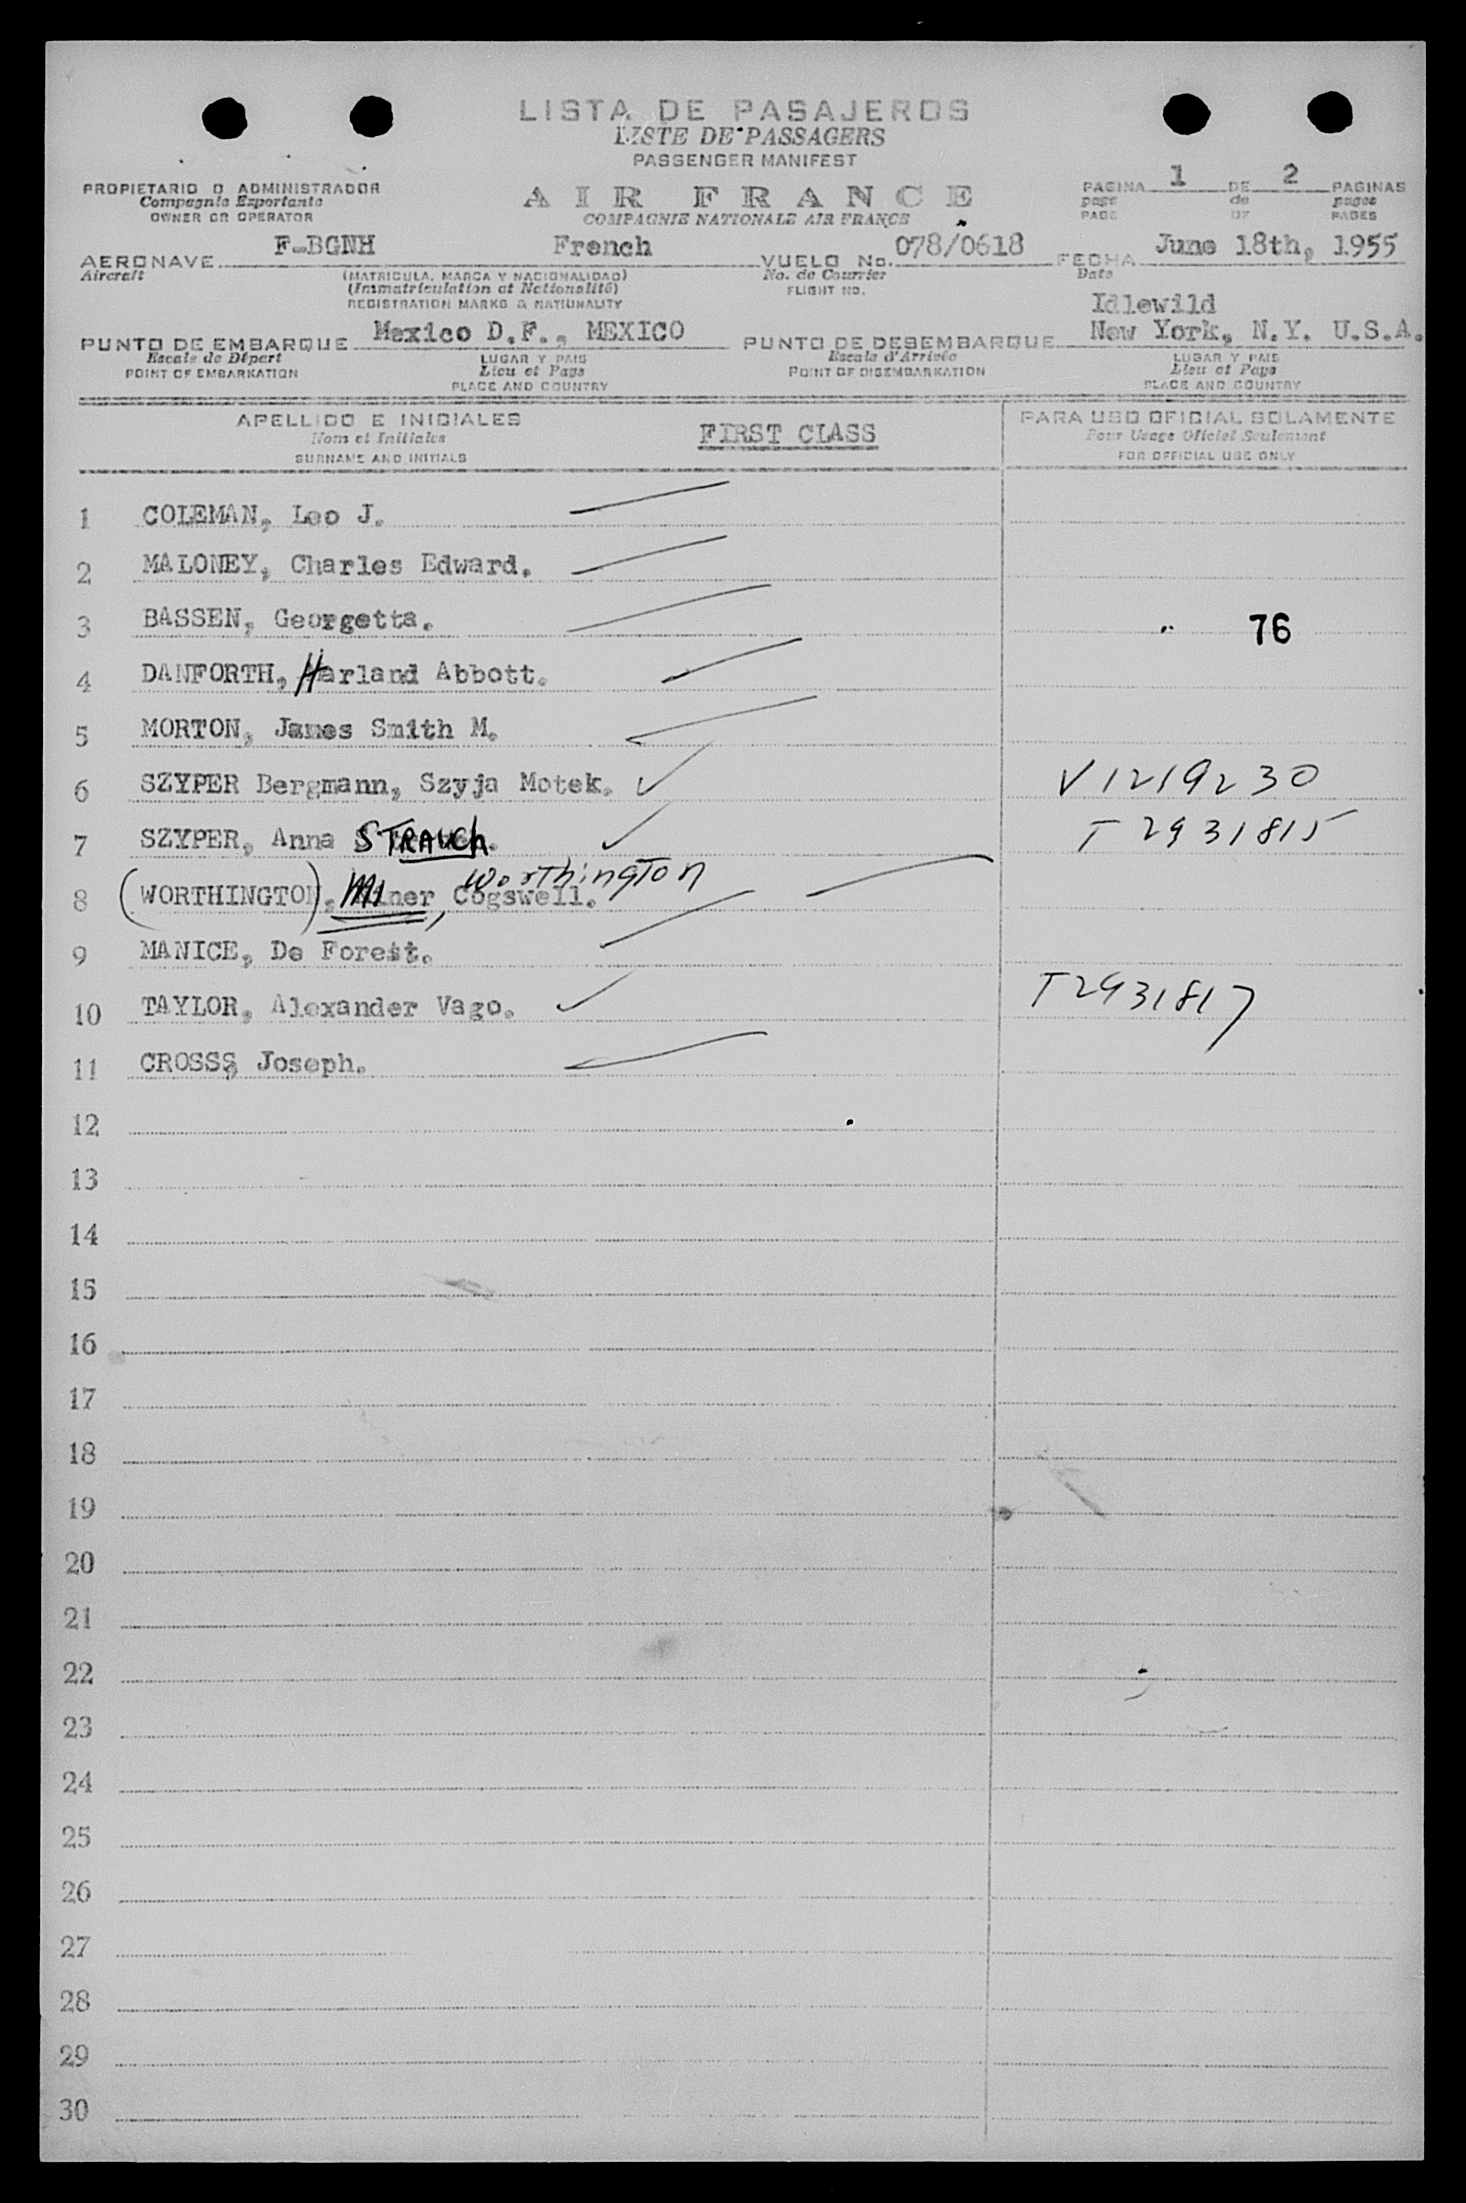 LISTA DE PASAJEROS
LISTE DE PASSAGERS
PASSENGER MANIFEST
PROPIETARIO O ADMINISTRADOR
Compagnie Exportante
OWNER OR OPERATOR
AIR FRANCE
COMPAGNIE NATIONALE AIR FRANCE
PAGINA 1 DE 2 PAGINAS
page de pages
PAGE OF PAGES
AERONAVE F-BGNH French VUELO No. 078/0618 FECHA June 18th, 1955
Aircraft (MATRICULA, MARCA Y NACIONALIDAD) No. de Courrier Date
(Immatriculation et Nationalité) FLIGHT NO.
REGISTRATION MARKS & NATIONALITY
Idlewild
PUNTO DE EMBARQUE Mexico D.F., MEXICO PUNTO DE DESEMBARQUE New York, N.Y. U.S.A.
Escale de Départ LUGAR Y PAIS Escale d'Arrivée LUGAR Y PAIS
POINT OF EMBARKATION Lieu et Pays POINT OF DISEMBARKATION Lieu et Pays
PLACE AND COUNTRY PLACE AND COUNTRY
APELLIDO E INICIALES FIRST CLASS PARA USO OFICIAL SOLAMENTE
Nom et Initiales Pour Usage Officiel Seulement
SURNAME AND INITIALS FOR OFFICIAL USE ONLY
1 COLEMAN, Leo J.
2 MALONEY, Charles Edward.
3 BASSEN, Georgetta. 76
4 DANFORTH, Harland Abbott.
5 MORTON, James Smith M.
6 SZYPER Bergmann, Szyja Motek. V1219230
7 SZYPER, Anna STRAUCh. T2931815
Worthington
8 (WORTHINGTON), Miner, Cogswell.
9 MANICE, De Forest.
10 TAYLOR, Alexander Vago. T2931817
11 CROSSS, Joseph.
12
13
14
15
16
17
18
19
20
21
22
23
24
25
26
27
28
29
30